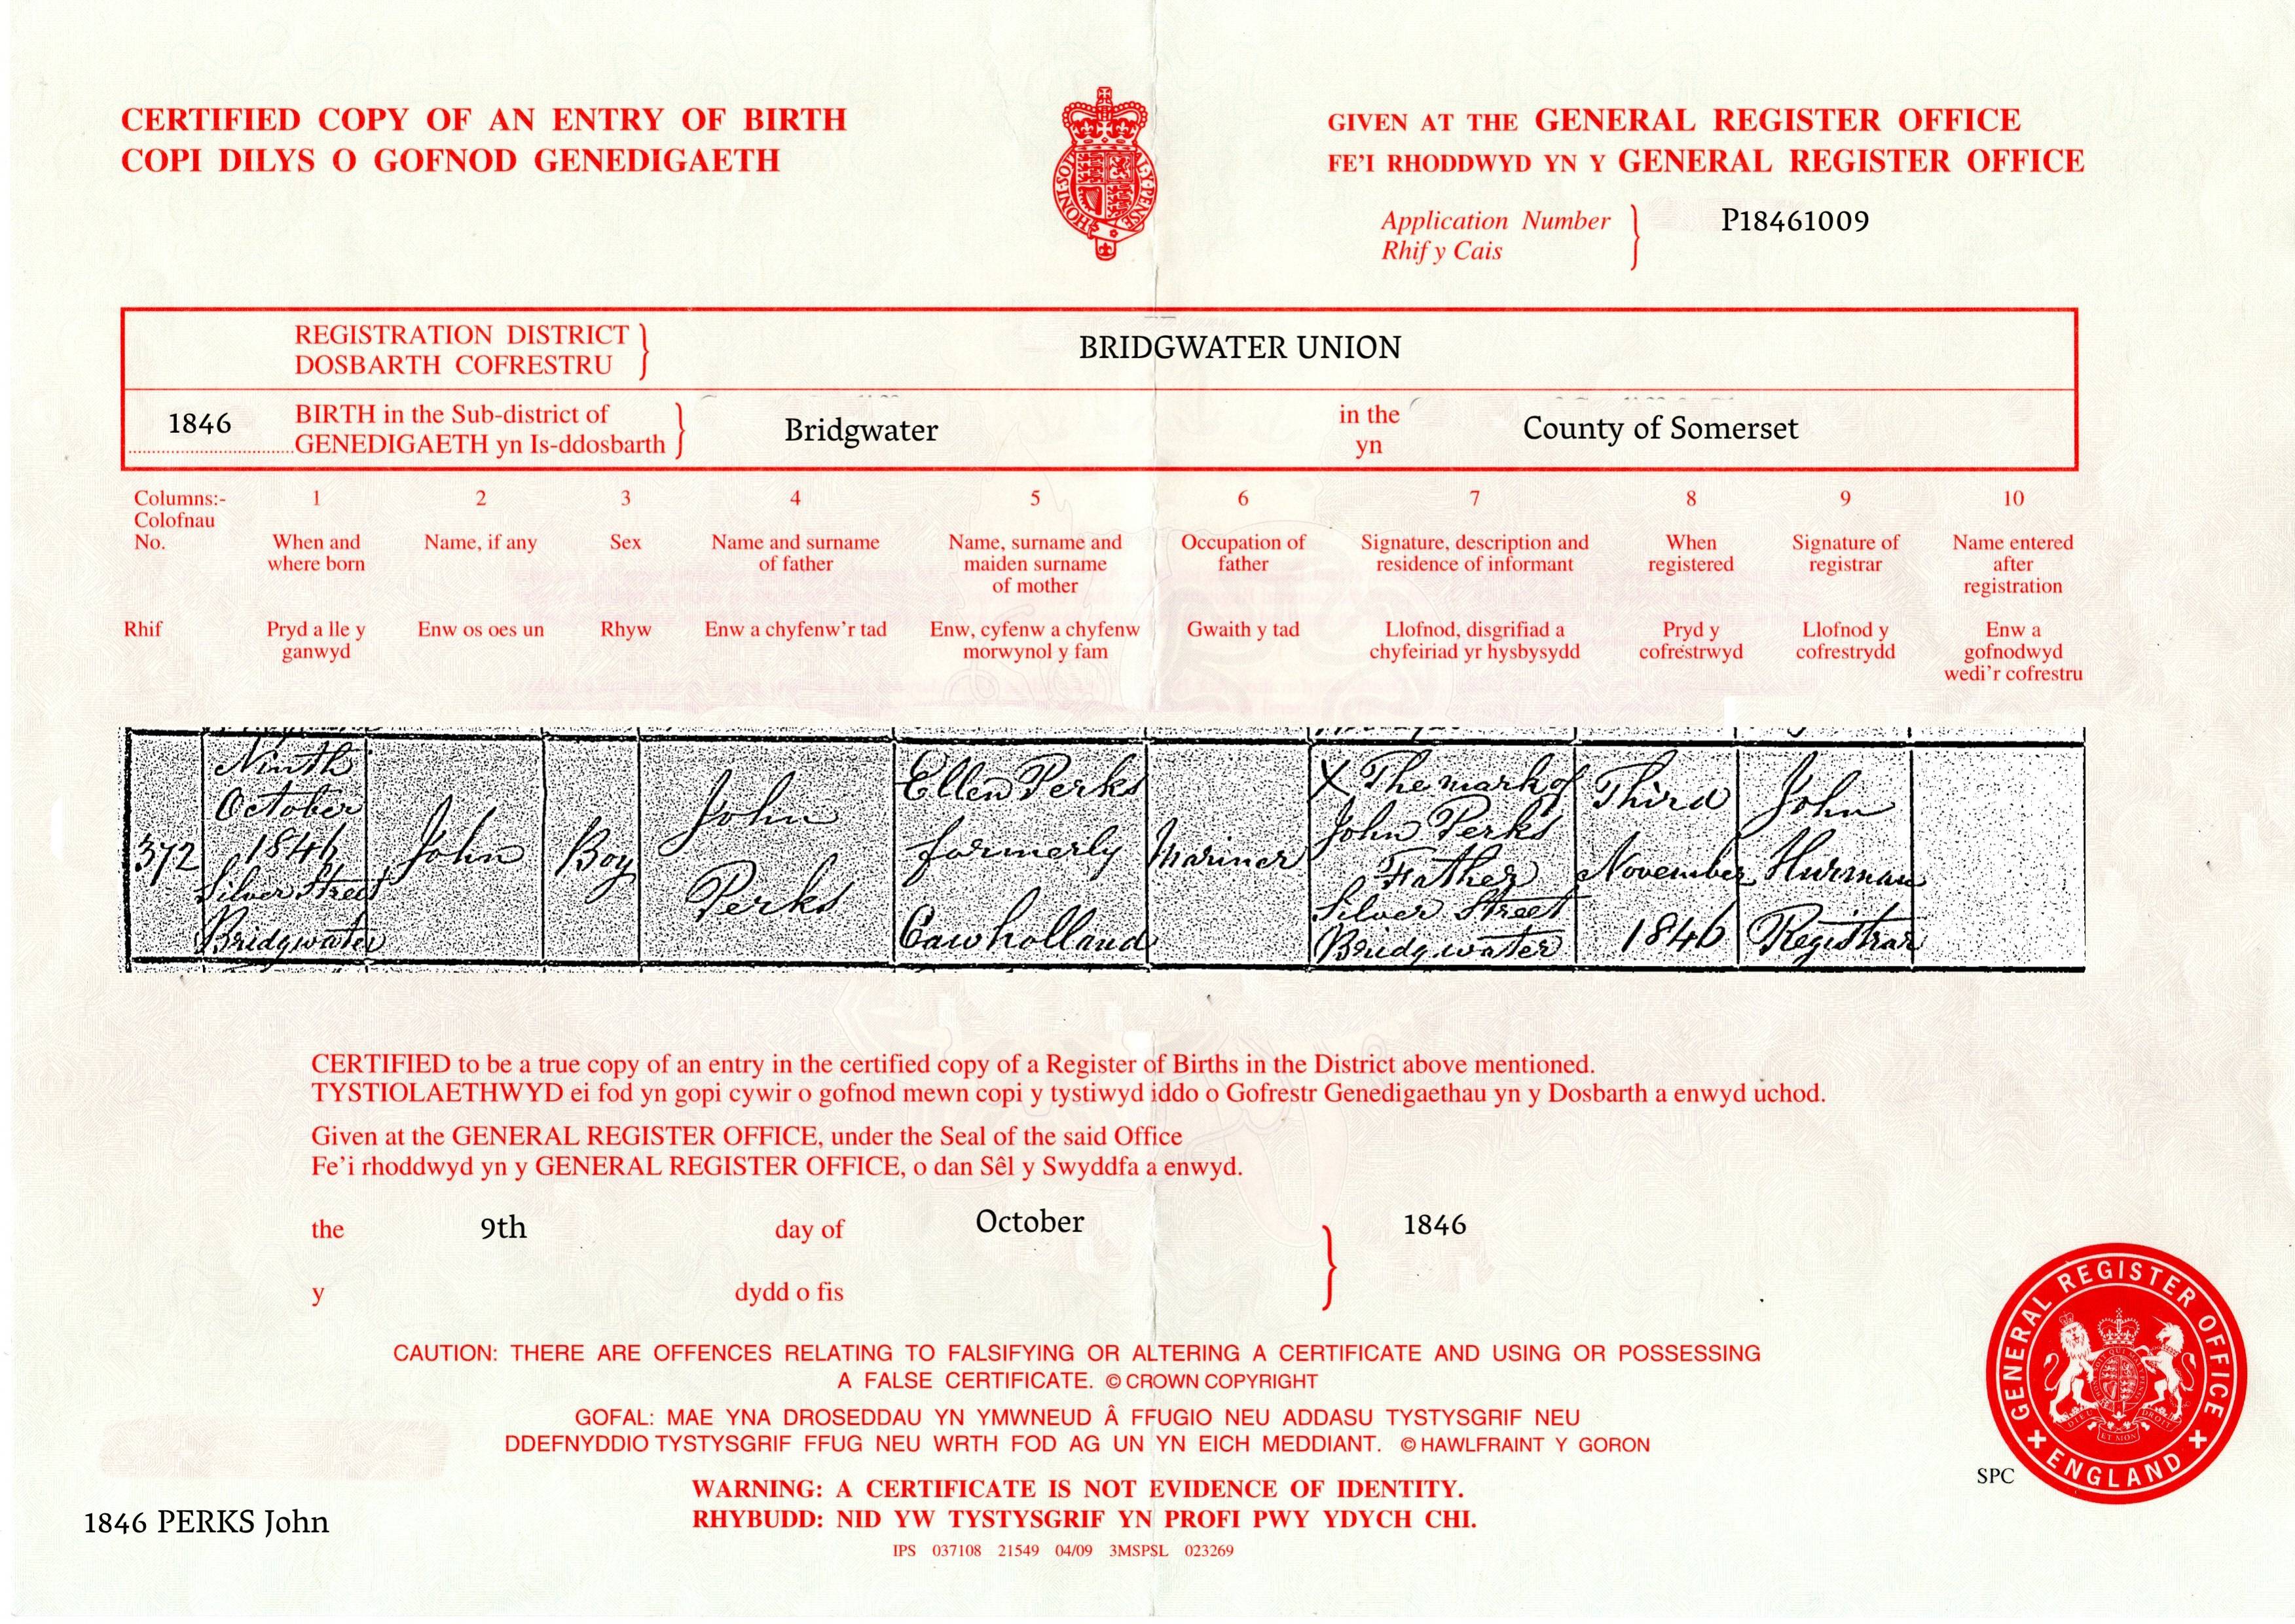 CERTIFIED COPY OF AN ENTRY OF BIRTH
COPI DILYS O GOFNOD GENEDIGAETH
HONI·SOIT·QUI·MAL·Y·PENSE
GIVEN AT THE GENERAL REGISTER OFFICE
FE'I RHODDWYD YN Y GENERAL REGISTER OFFICE
Application Number
Rhif y Cais
P18461009
REGISTRATION DISTRICT
DOSBARTH COFRESTRU
BRIDGWATER UNION
1846
BIRTH in the Sub-district of
GENEDIGAETH yn Is-ddosbarth
Bridgwater
in the
yn
County of Somerset
Columns:-
Colofnau
No.
Rhif
1
When and
where born
Pryd a lle y
ganwyd
2
Name, if any
Enw os oes un
3
Sex
Rhyw
4
Name and surname
of father
Enw a chyfenw'r tad
5
Name, surname and
maiden surname
of mother
Enw, cyfenw a chyfenw
morwynol y fam
6
Occupation of
father
Gwaith y tad
7
Signature, description and
residence of informant
Llofnod, disgrifiad a
chyfeiriad yr hysbysydd
8
When
registered
Pryd y
cofrestrwyd
9
Signature of
registrar
Llofnod y
cofrestrydd
10
Name entered
after
registration
Enw a
gofnodwyd
wedi'r cofrestru
372
Ninth
October
1846
Silver Street
Bridgwater
John
Boy
John
Perks
Ellen Perks
formerly
Cawholland
Mariner
X The mark of
John Perks
Father
Silver Street
Bridgwater
Third
November
1846
John
Hurman
Registrar
CERTIFIED to be a true copy of an entry in the certified copy of a Register of Births in the District above mentioned.
TYSTIOLAETHWYD ei fod yn gopi cywir o gofnod mewn copi y tystiwyd iddo o Gofrestr Genedigaethau yn y Dosbarth a enwyd uchod.
Given at the GENERAL REGISTER OFFICE, under the Seal of the said Office
Fe'i rhoddwyd yn y GENERAL REGISTER OFFICE, o dan Sêl y Swyddfa a enwyd.
the 9th day of October 1846
y dydd o fis
CAUTION: THERE ARE OFFENCES RELATING TO FALSIFYING OR ALTERING A CERTIFICATE AND USING OR POSSESSING
A FALSE CERTIFICATE. © CROWN COPYRIGHT
GOFAL: MAE YNA DROSEDDAU YN YMWNEUD Â FFUGIO NEU ADDASU TYSTYSGRIF NEU
DDEFNYDDIO TYSTYSGRIF FFUG NEU WRTH FOD AG UN YN EICH MEDDIANT. © HAWLFRAINT Y GORON
WARNING: A CERTIFICATE IS NOT EVIDENCE OF IDENTITY.
RHYBUDD: NID YW TYSTYSGRIF YN PROFI PWY YDYCH CHI.
IPS 037108 21549 04/09 3MSPSL 023269
1846 PERKS John
SPC
GENERAL REGISTER OFFICE
ENGLAND